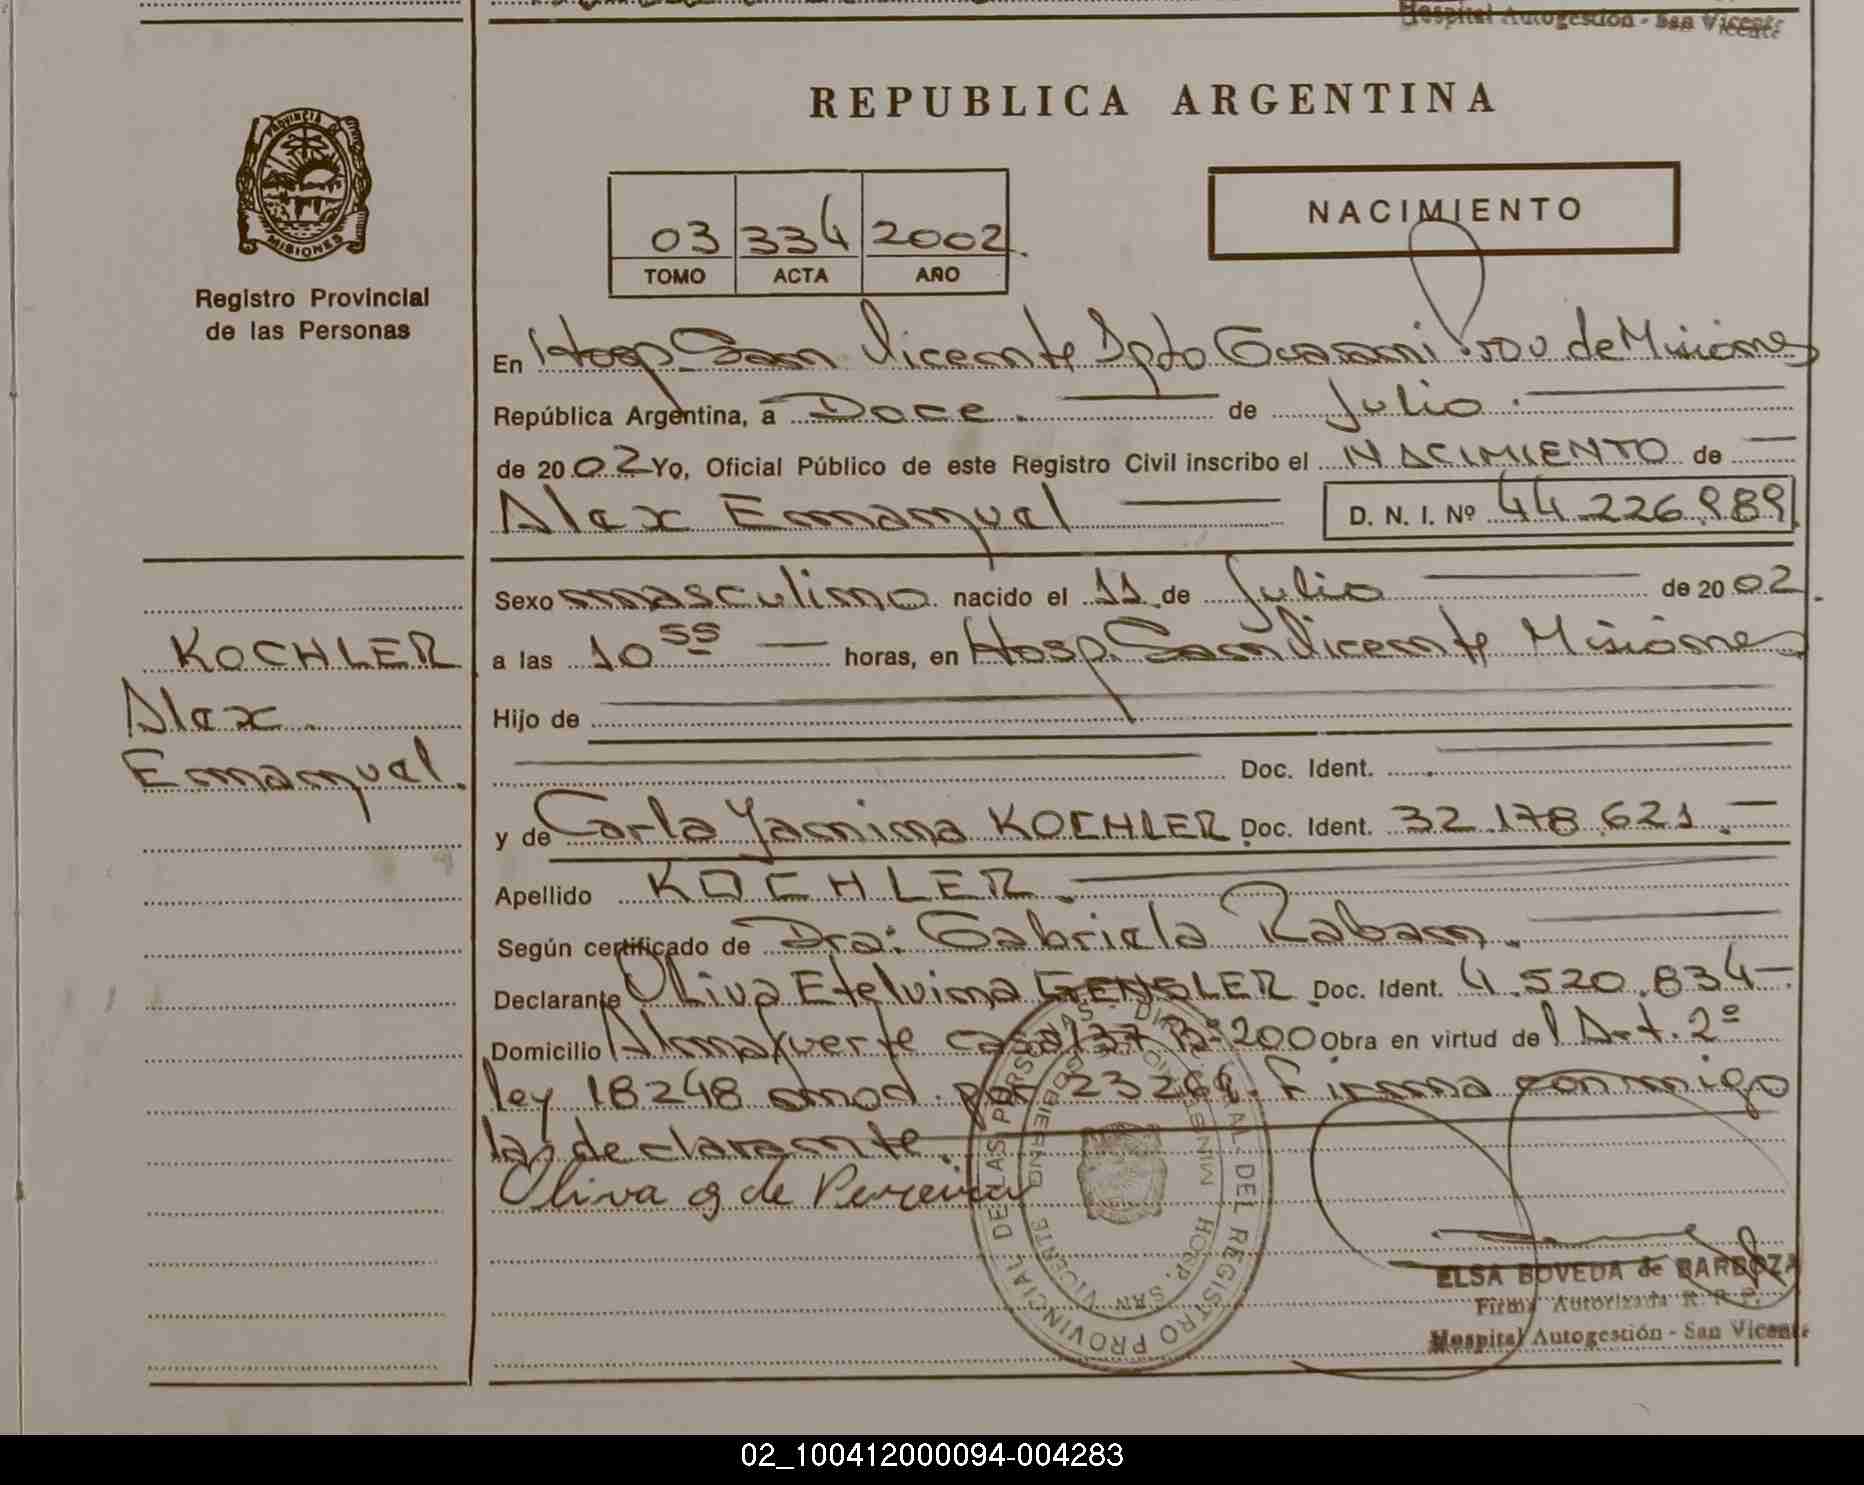 Hospital Autogestión - San Vicente
REPUBLICA ARGENTINA
PROVINCIA DE
MISIONES
Registro Provincial
de las Personas
03 334 2002
TOMO ACTA AÑO
NACIMIENTO
En Hosp. San Vicente Dpto Guaraní Prov de Misiones
República Argentina, a Doce. de Julio.
de 20 02 Yo, Oficial Público de este Registro Civil inscribo el NACIMIENTO de
Alex Emanuel D. N. I. Nº 44.226.989
Sexo masculino nacido el 11 de Julio de 20 02.
KOCHLER
a las 10 55 horas, en Hosp. San Vicente Misiones
Alex
Hijo de
Emanuel.
Doc. Ident.
y de Carla Yanina KOCHLER Doc. Ident. 32.178.621.
Apellido KOCHLER.
Según certificado de Dra: Gabriela Raban.
Declarante Oliva Etelvina GENSLER Doc. Ident. 4.520.834
Domicilio Almafuerte casa 137 Bº 200 Obra en virtud del Art. 2º
ley 18248 mod. por 23264. Firma conmigo
la declarante.
Oliva g de Pereira
REGISTRO PROVINCIAL DE LAS PERSONAS
HOSP. SAN VICENTE
ELSA BOVEDA de BARBOZA
Firma Autorizada R. P. P.
Hospital Autogestión - San Vicente
02_100412000094-004283